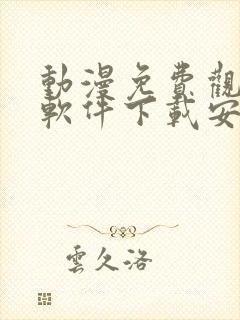 動漫免費觀
軟件下載安
雲久洛